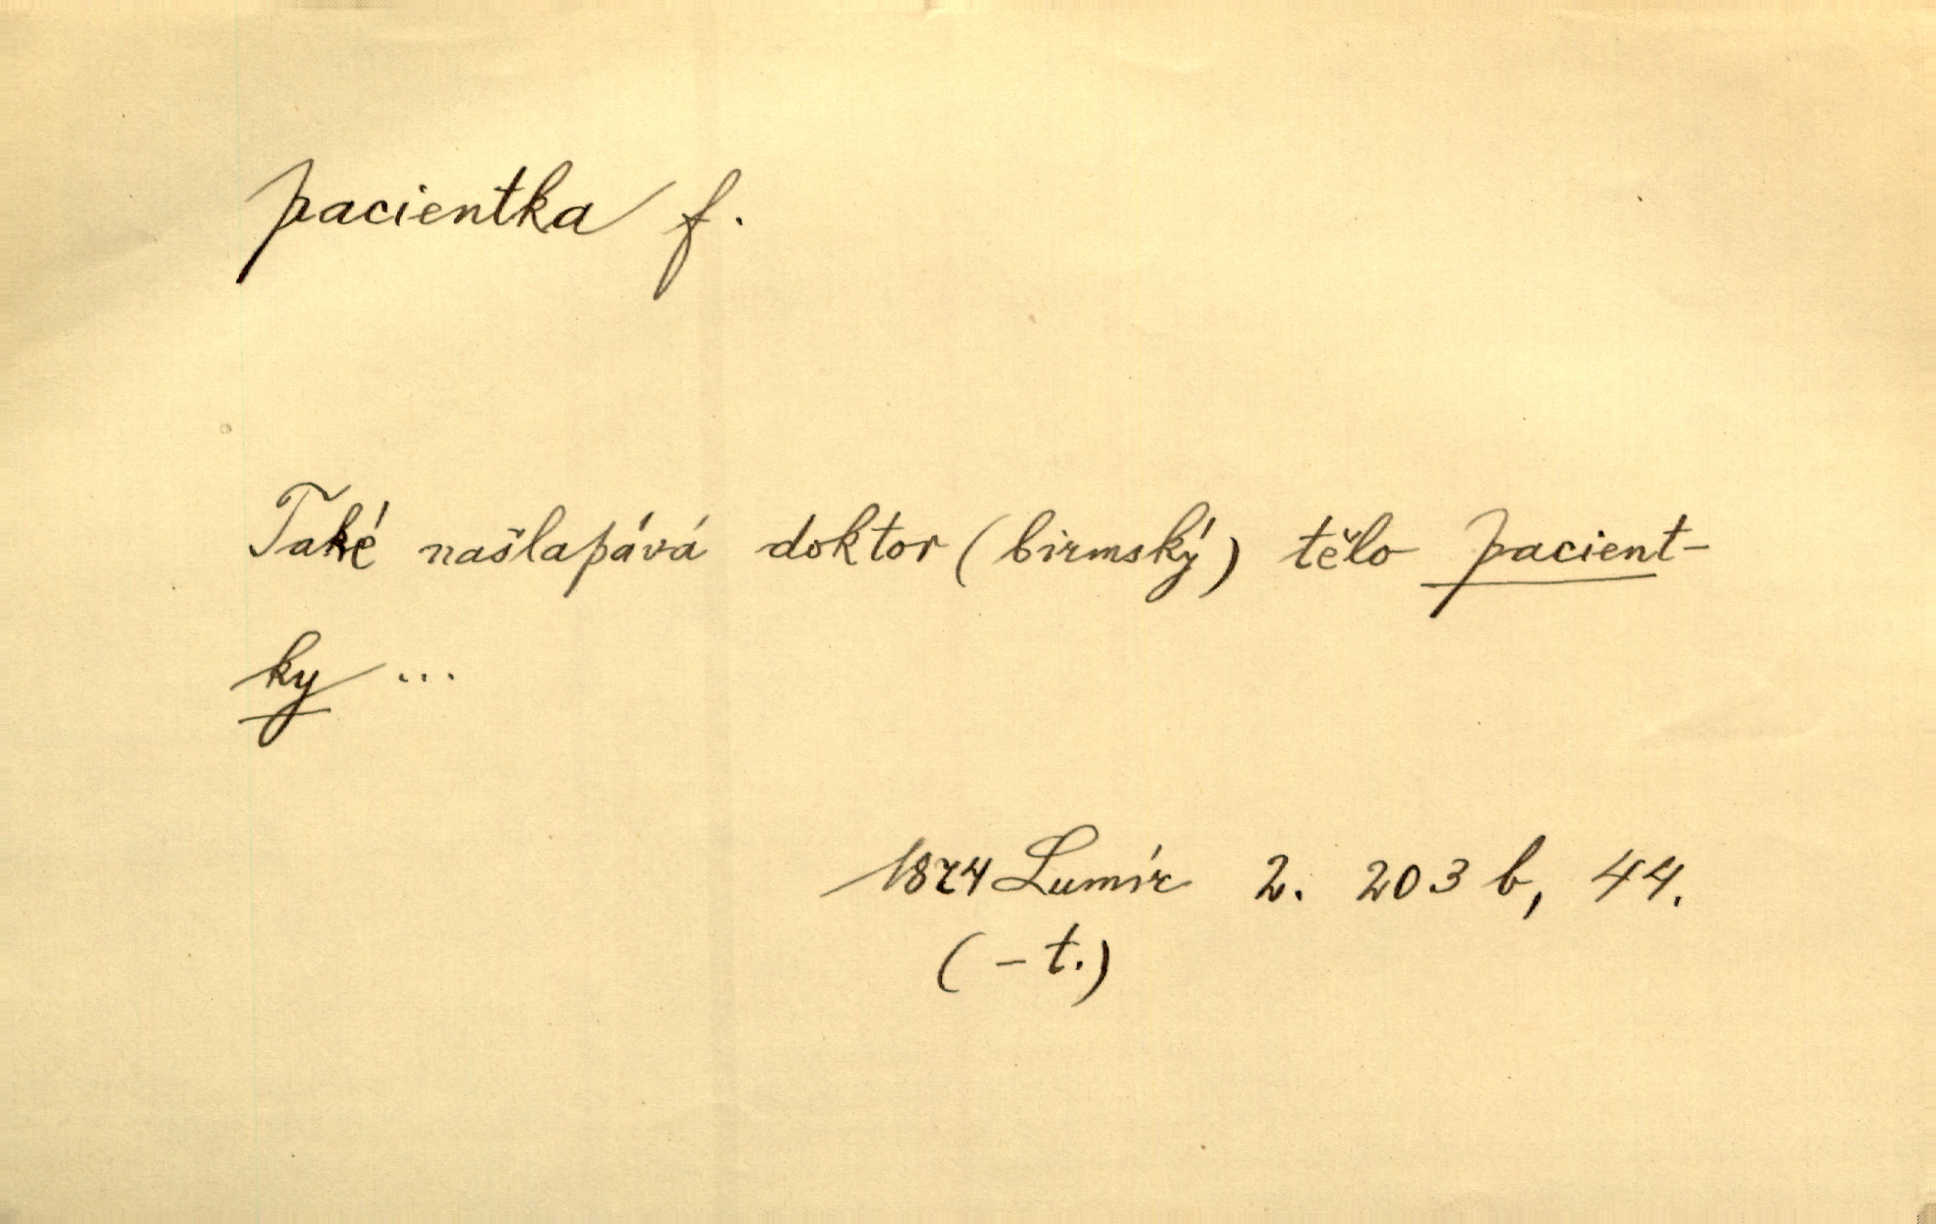 pacientka f.
Také našlapává doktor (birmský) tělo pacient-
ky ...
1874 Lumír 2. 203 b, 44.
(-t.)